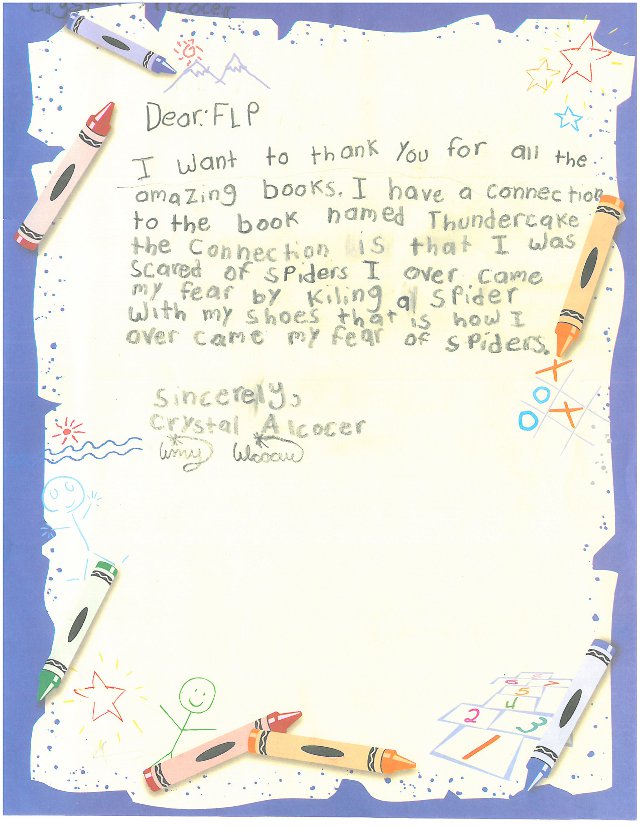 Crystal Alcocer
Dear: FLP
I want to thank you for all the
amazing books. I have a connection
to the book named Thundercake
the connection is that I was
scared of spiders I over came
my fear by kiling a spider
with my shoes that is how I
over came my fear of spiders.
sincerely,
crystal Alcocer
X
O X
O
6 7
5
4
2 3
1